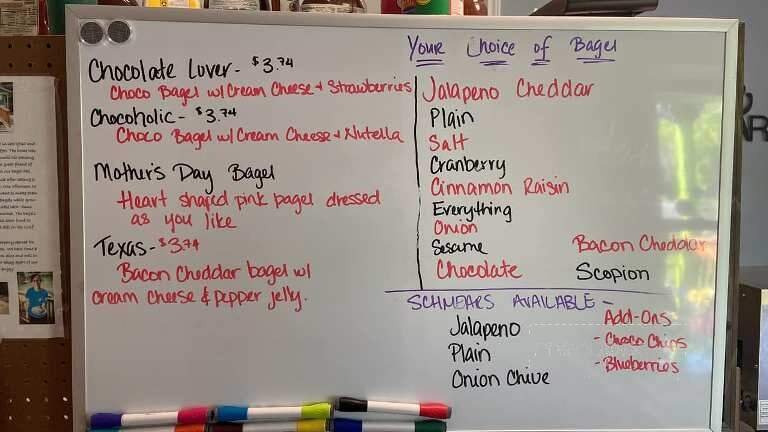 Chocolate Lover - $3.74
Choco Bagel w/ Cream Cheese + Strawberries
Chocoholic - $3.74
Choco Bagel w/ Cream Cheese + Nutella
Mother's Day Bagel
Heart shaped pink bagel dressed
as you like
Texas - $3.74
Bacon Cheddar bagel w/
cream cheese & pepper jelly.
Your Choice of Bagel
Jalapeno Cheddar
Plain
Salt
Cranberry
Cinnamon Raisin
Everything
Onion
Sesame
Bacon Cheddar
Chocolate
Scopion
SCHMEARS AVAILABLE -
Jalapeno
Plain
Onion Chive
Add-Ons
- Choco Chips
- Blueberries